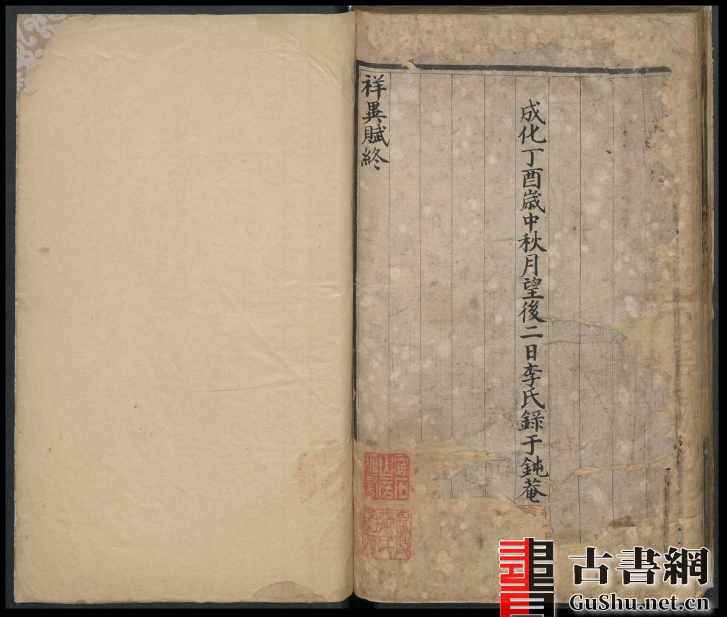 成化丁酉歲中秋月望後二日李氏錄于鈍菴
祥異賦終
古書網
GuShu.net.cn